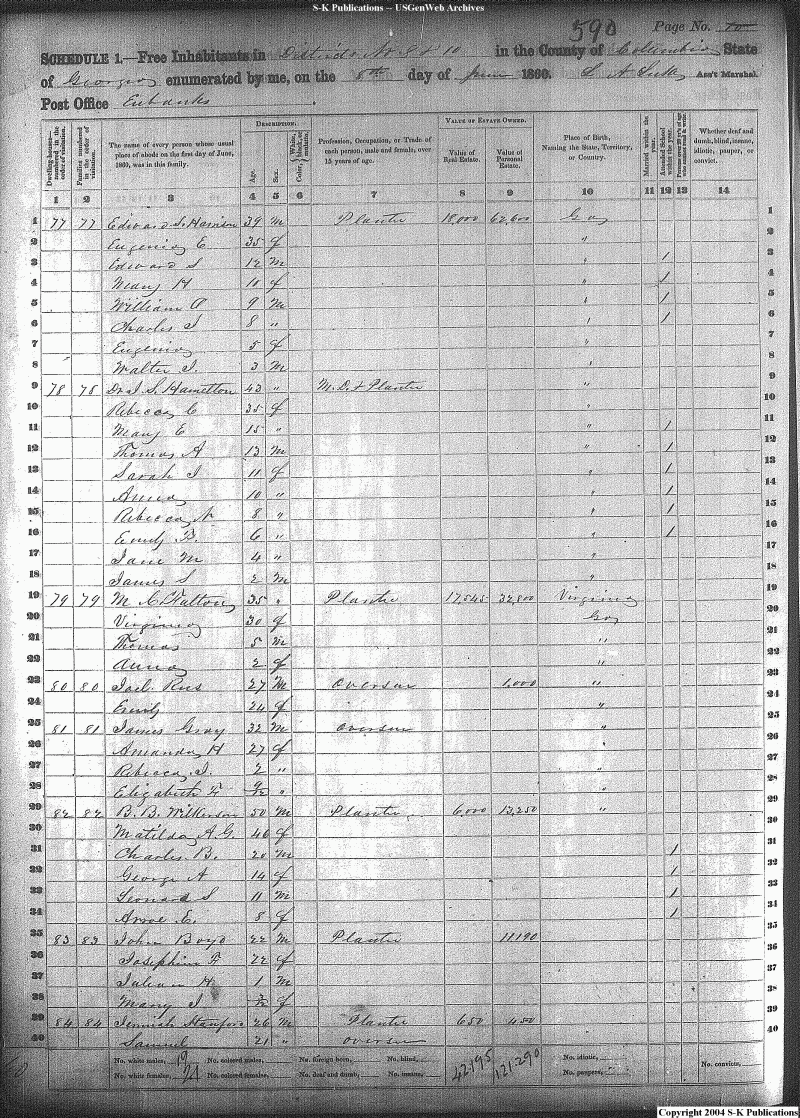 S-K Publications -- USGenWeb Archives
590 Page No. 10
SCHEDULE 1.—Free Inhabitants in Districts No. 8 & 10 in the County of Columbia State
of Georgia enumerated by me, on the 8th day of June 1860. Ass't Marshal.
Post Office Eubanks
Dwelling-houses numbered in the order of visitation. Families numbered in the order of visitation. The name of every person whose usual place of abode on the first day of June, 1860, was in this family. DESCRIPTION. Age. Sex. Color, White, black, or mulatto. Profession, Occupation, or Trade of each person, male and female, over 15 years of age. VALUE OF ESTATE OWNED. Value of Real Estate. Value of Personal Estate. Place of Birth, Naming the State, Territory, or Country. Married within the year. Attended School within the year. Whether deaf and dumb, blind, insane, idiotic, pauper, or convict.
1 2 3 4 5 6 7 8 9 10 11 12 13 14
1 77 77 Edward S. Harrison 39 M Planter 18,000 62,600 Ga 1
2 Eugenia E 35 f " 2
3 Edward S 12 M " / 3
4 Mary H 11 f " / 4
5 William A 9 M " / 5
6 Charles J 8 " " / 6
7 Eugenia 5 f " 7
8 Walter J. 3 M " 8
9 78 78 Dr J. S. Hamilton 43 " M.D. & Planter " 9
10 Rebecca C 35 f " 10
11 Mary E 15 " " / 11
12 Thomas A 13 M " / 12
13 Sarah J 11 f " / 13
14 Anna 10 " " / 14
15 Rebecca N 8 " " / 15
16 Emily B. 6 " " / 16
17 Jane M 4 " " 17
18 James S 2 M " 18
19 79 79 M 35 " Planter 17,545 32,800 Virginia 19
20 Virginia 30 f Ga 20
21 Thomas 5 M " 21
22 Anna 2 f " 22
23 80 80 Joel Rees 27 M Overseer 1,000 " 23
24 Emily 24 f " 24
25 81 81 James Gray 32 M Overseer " 25
26 Amanda H 27 f " 26
27 Rebecca J. 2 " " 27
28 Elizabeth F " " 28
29 82 82 B. B. Wilkerson 50 M Planter 6,000 13,250 " 29
30 Matilda A. G. 40 f 30
31 Charles B. 20 M / 31
32 George A 14 f / 32
33 Leonard S 11 M / 33
34 E. 8 f / 34
35 83 83 John Boyd 22 M Planter 11190 35
36 Josephine F 22 f 36
37 Julian H 1 M 37
38 Mary J f 38
39 84 84 Jemiah Stanford 26 M Planter 650 450 39
40 Samuel 21 " Overseer 40
No. white males, 19 No. colored males, No. foreign born, No. blind, 42195 121290 No. idiotic, No. convicts,
No. white females, 21 No. colored females, No. deaf and dumb, No. insane, No. paupers,
Copyright 2004 S-K Publications